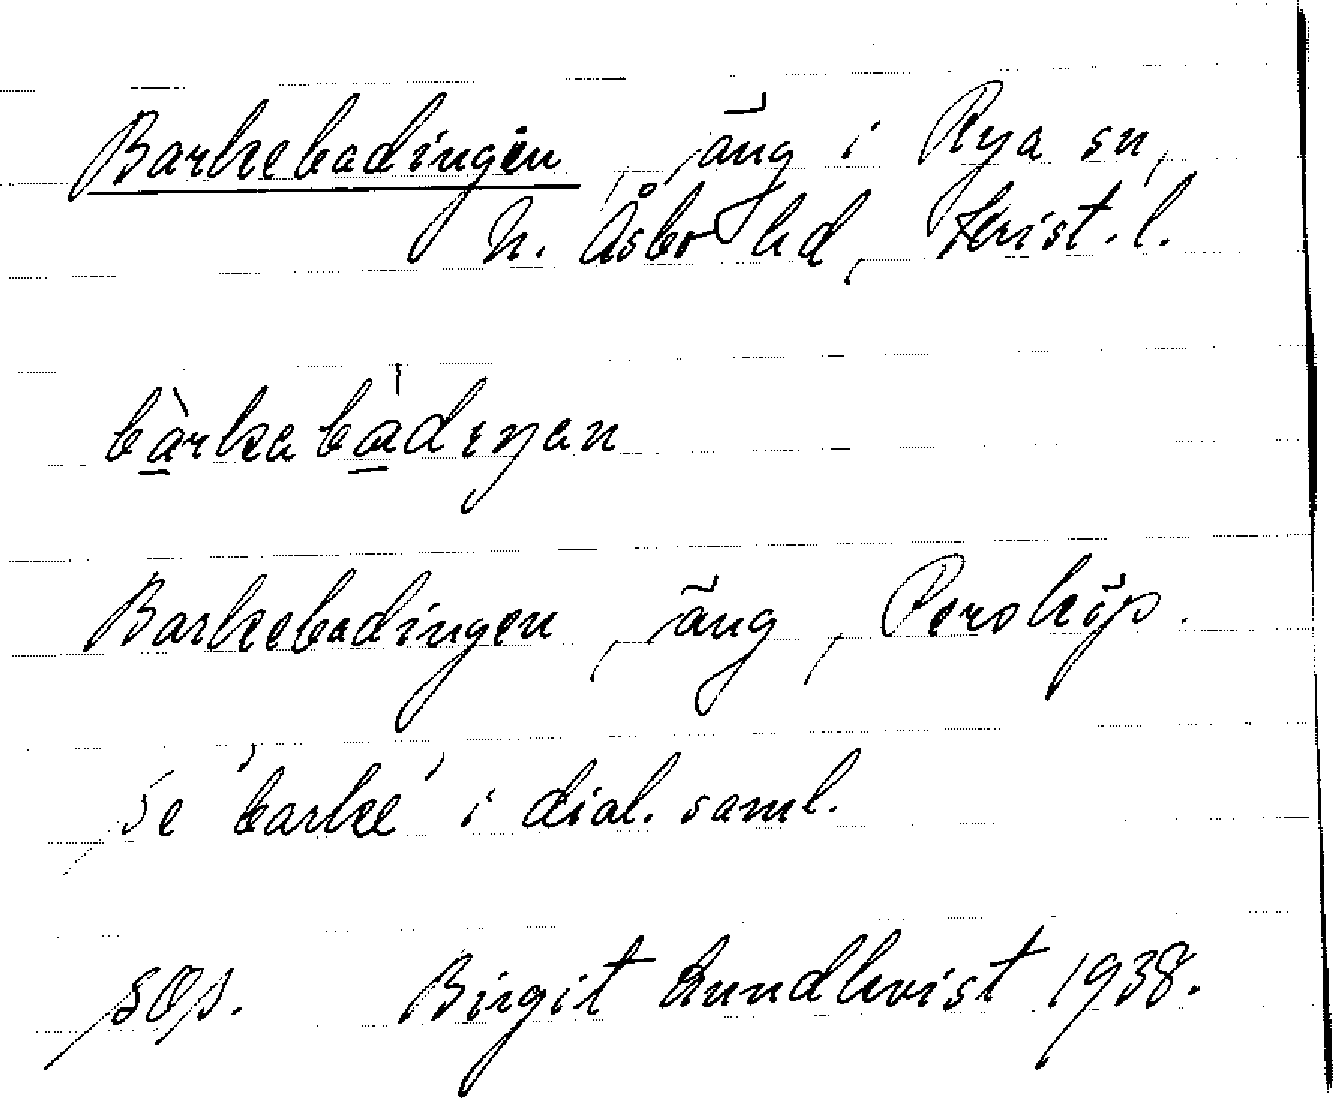 Barkebadingen, äng i Rya sn,
N. Åsbo hd, Krist. l.
bàrkabàdıŋan
Barkebadingen, äng, Perskôp.
Se 'barke' i dial. saml.
Birgit Lundkvist 1938.